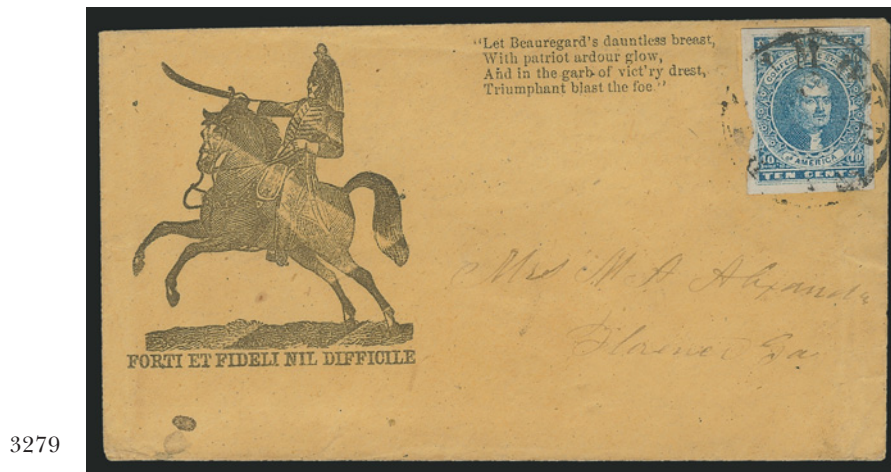 "Let Beauregard's dauntless breast,
With patriot ardour glow,
And in the garb of vict'ry drest,
Triumphant blast the foe."
OF AMERICA
10 10
TEN CENTS
Mrs M A
FORTI ET FIDELI NIL DIFFICILE
3279